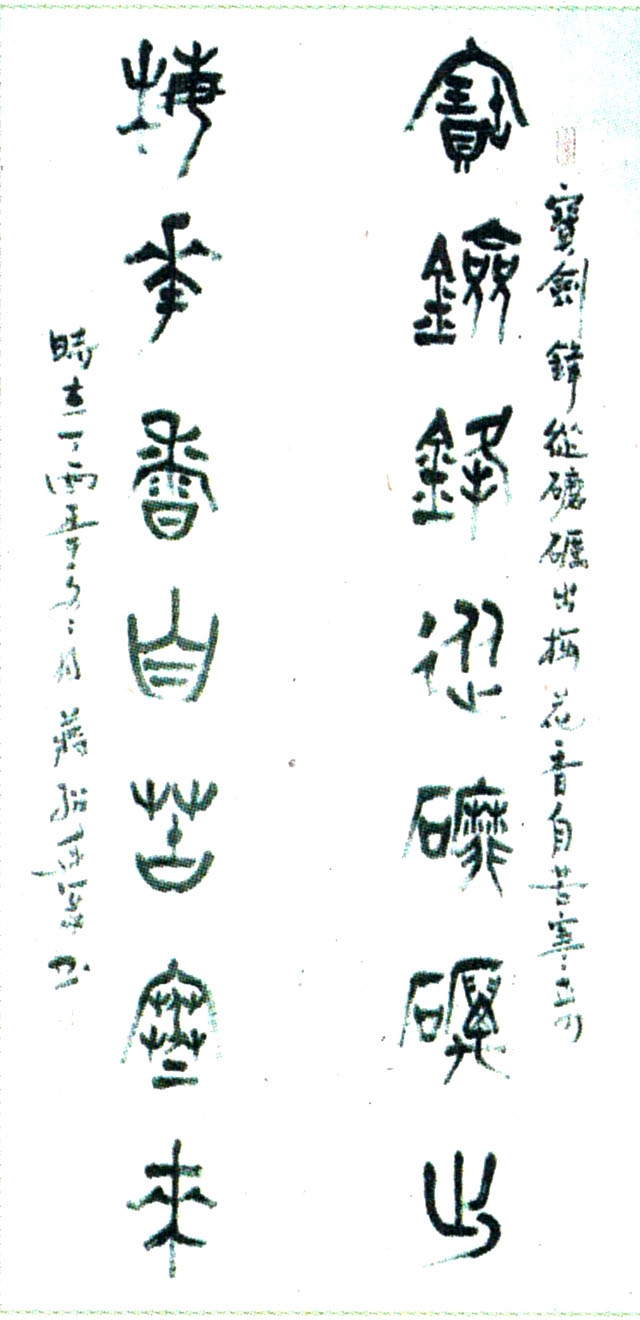 寶劍鋒從磨礪出梅花香自苦寒
寶鐱鋒從磨礪出
梅華香自苦寒來
時在丁酉冬月蔣書